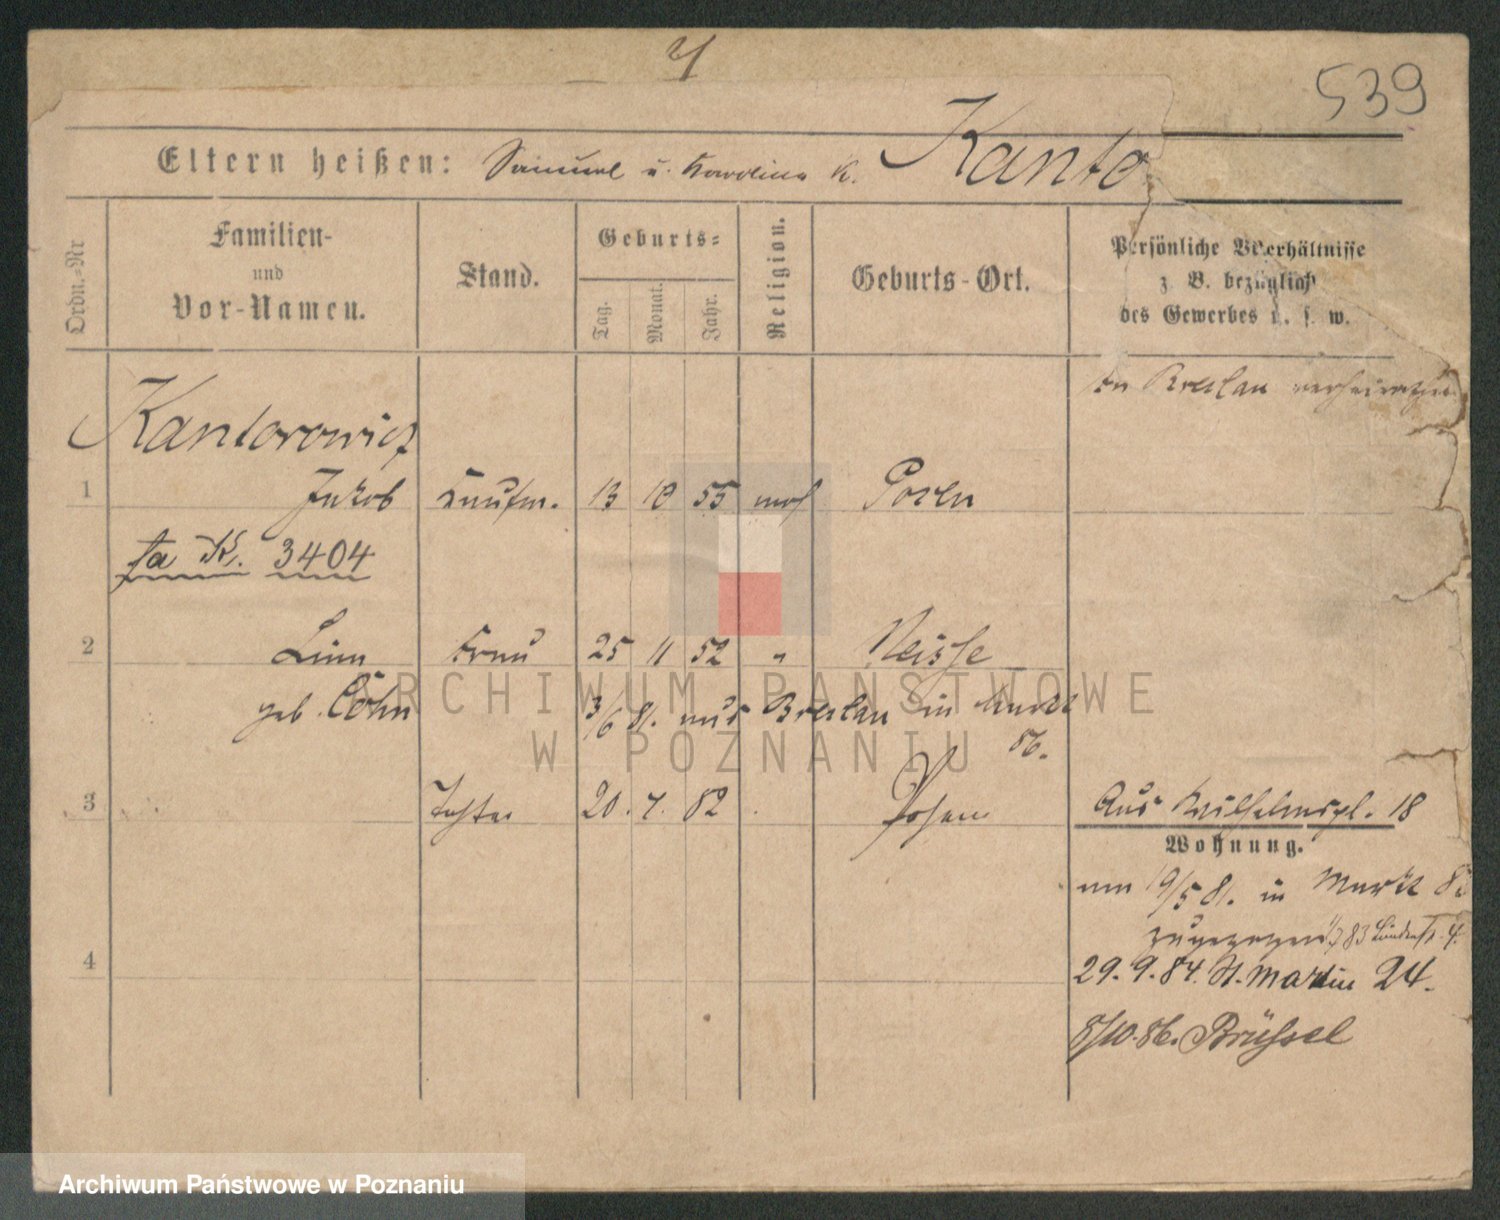 4
539
Eltern heißen: Samuel u. Karoline K. Kanto
Ordn.-Nr
Familien-
und
Vor-Namen.
Stand.
Geburts-
Tag.
Monat.
Jahr.
Religion.
Geburts-Ort.
Persönliche Verhältnisse
z. B. bezüglich
des Gewerbes u. s. w.
in Breslau verheirathet
Kantorowicz
1 Jakob Kaufm. 13 10 55 mos Posen
fa K. 3404
2 Lina Frau 25 11 52 " Neisse
geb. Cohn 3/6 81. aus Breslau in Markt
86.
3 Tochter 20. 4. 82 Posen Aus Wilhelmspl. 18
Wohnung.
am 19/5 81. in Markt
zugezogen 83 Lindenstr. 4.
4 29. 9. 84. St. Martin 24.
8/10. 86. Brüssel
ARCHIWUM PAŃSTWOWE
W POZNANIU
Archiwum Państwowe w Poznaniu